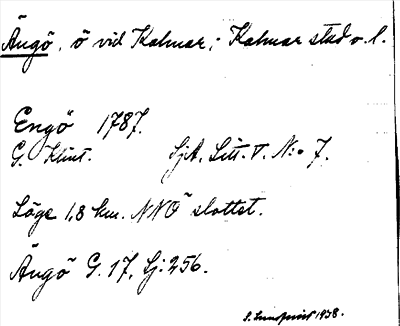 Ängö, ö vid Kalmar, Kalmar stad o. l.
Engö 1787.
G. Klint. SjA. Litt. V. N:o 7.
Läge 1,8 km. NNÖ slottet.
Ängö G. 17, Lj: 256.
S. Lundqvist 1938.